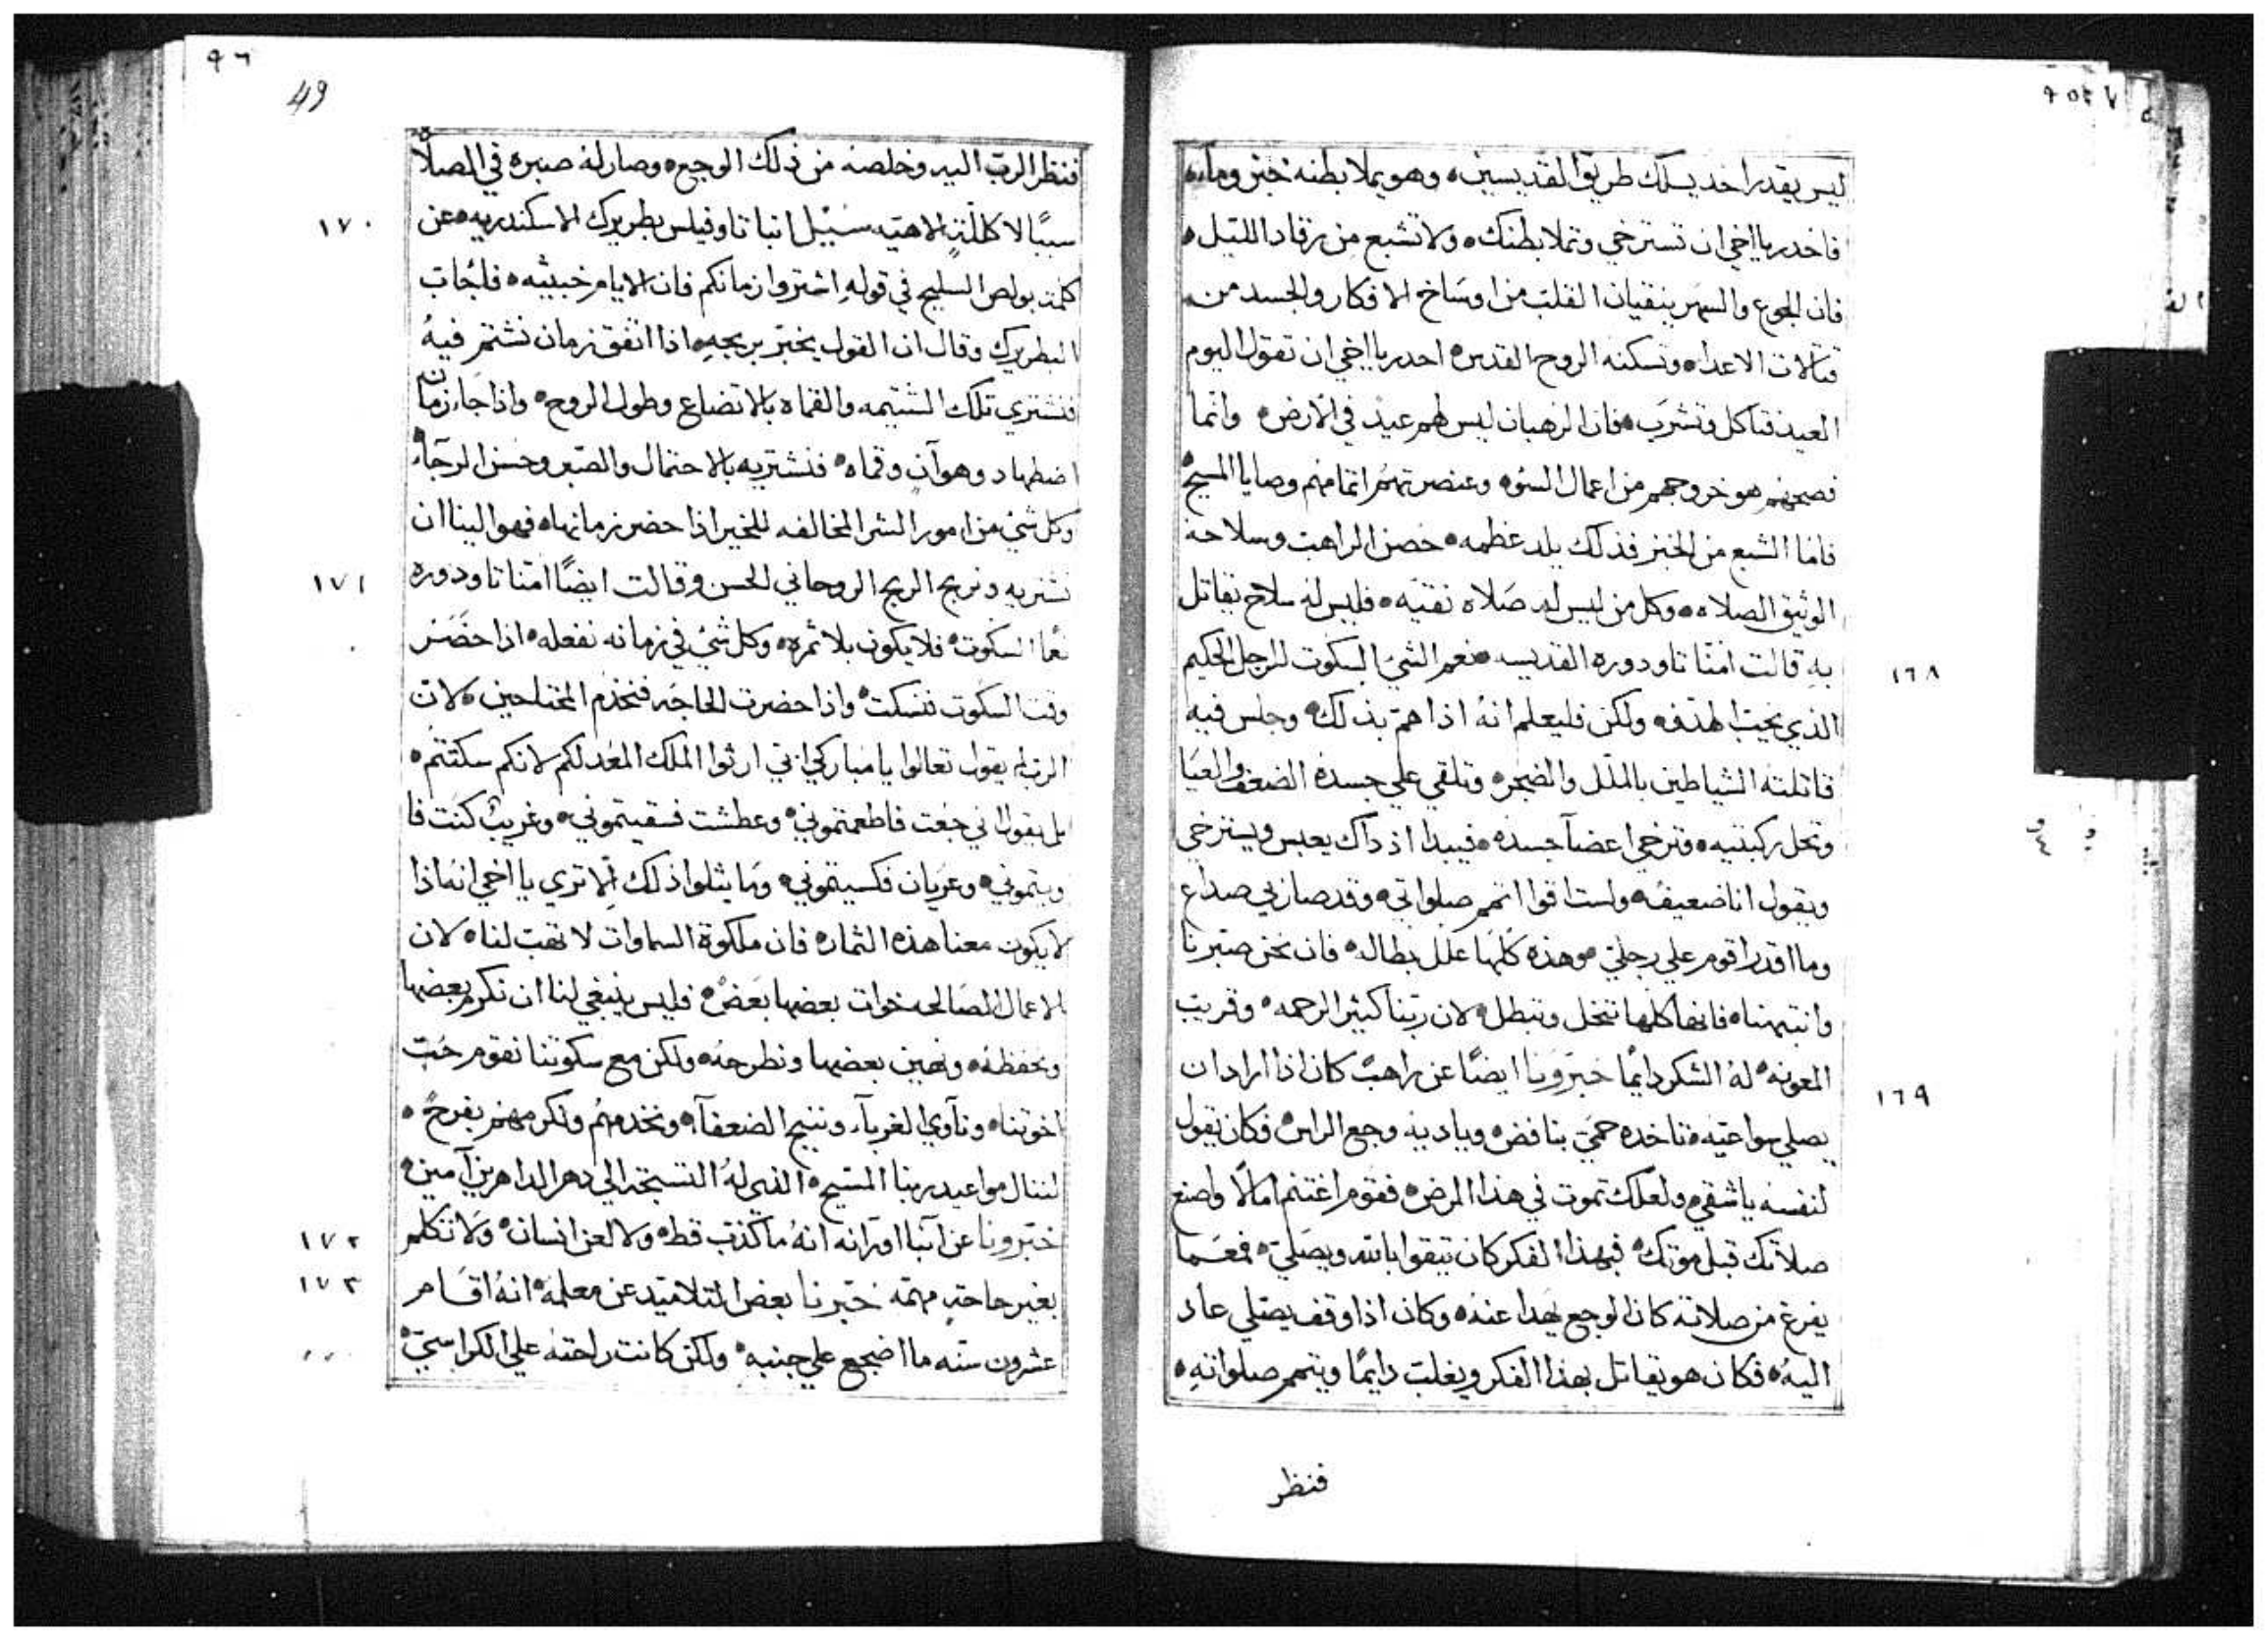 ليس يقدر احد يسلك طريق القديسين وهو يملا بطنه خبز وماء
فاحدر يا اخي ان تسترخي وتملا بطنك ولا تشبع من رقاد الليل
فان الجوع والسهر ينقيان القلب من اوساخ الافكار والجسد من
قتالات الاعداء وتسكنه الروح القدس احدر يا اخي ان تقول اليوم
العيد فتاكل وتشرب فان الرهبان ليس لهم عيد في الارض وانما
فصحهم هو خروجهم من اعمال السوء وعنصرتهم اتمامهم وصايا المسيح
فاما الشبع من الخبز فذلك بلد عظمه حصن الراهب وسلاحه
الوثيق الصلاه وكل من ليس له صلاه نقيه فليس له سلاح يقاتل
١٦٨ به قالت امنا تاودوره القديسه نعم الشي السكوت للرجل الحكيم
الذي يحب الهدف ولكن فليعلم انه اذا هم بذلك وجلس فيه
قاتلته الشياطين بالملل والضجر وتلقي علي جسده الضعف والعيا
وتحل ركبتيه وترخي اعضا جسده فيبدا اذ داك يعبس ويسترخي
ويقول انا ضعيف ولست اقوا اتمم صلواتي وقد صار بي صداع
وما اقدر اقوم علي رجلي وهذه كلها علل بطاله فان نحن صبرنا
وانتبهنا فانها كلها تنحل وتبطل لان ربنا كثير الرحمه وقريب
١٦٩ المعونه له الشكر دايما خبرونا ايضا عن راهب كان اذا اراد ان
يصلي سواعيه تاخده حمي بنافض وياديه وجع الراس فكان يقول
لنفسه يا شقي ولعلك تموت في هذا المرض فقوم اغتنم امالا واصنع
صلاتك قبل موتك فبهذا الفكر كان يتقوا بالله ويصلي فمعما
يفرغ من صلاته كان الوجع يهدا عنه وكان اذا وقف يصلي عاد
اليه فكان هو يقاتل بهذا الفكر ويغلب دايما ويتمم صلواته
فنظر
٩٦
49
فنظر الرب اليه وخلصه من ذلك الوجع وصار له صبره في الصلاه
١٧٠ سببا لاكلة الاهيه سئل انبا تاوفيلس بطريرك الاسكندريه عن
كلمة بولص السليح في قوله اشتروا زمانكم فان الايام خبيثه فاجاب
البطريرك وقال ان القول يخبر بربحه اذا اتفق زمان تشتم فيه
فنشتري تلك الشتيمه والقماه بالاتضاع وطول الروح واذا جاء زمان
اضطهاد وهوان وقماه فنشتريه بالاحتمال والصبر وحسن الرجاء
وكل شي من امور الشر المخالفه للخير اذا حضر زمانها فهو الينا ان
١٧١ نشتريه ونربح الربح الروحاني الحسن وقالت ايضا امنا تاودوره
نعما السكوت فلا يكون بلا ثمره وكل شي في زمانه نفعله اذا حضر
وقت السكوت ننسكت واذا حضرت الحاجه فنخدم المحتاجين لان
الرب لم يقول تعالوا يا مباركي ابي ارثوا الملك المعد لكم لانكم سكتتم
بل يقول اني جعت فاطعمتموني وعطشت فسقيتموني وغريب كنت فا
ويتموني وعريان فكسيتموني وما يتلوا ذلك الا تري يا اخي انه اذا
لا يكون معنا هذه الثمار فان ملكوة السماوات لا تهب لنا لان
الاعمال الصالحه خوات بعضها بعض فليس ينبغي لنا ان نكرم بعضها
ونحفظه ونهين بعضها ونطرحه ولكن مع سكوتنا نقوم حب
اخوتنا وناوي الغرباء وننيح الضعفاء ونخدمهم ولكن مهنم بفرح
لننال مواعيد ربنا المسيح الذي له التسبحه الي دهر الداهرين امين
١٧٢ خبرونا عن انبا اورانه انه ما كذب قط ولا لعن انسان ولا تكلم
١٧٣ بغير حاجه مهمه خبرنا بعض التلاميد عن معلمه انه اقام
عشرون سنه ما اضجع علي جنبه ولكن كانت راحته علي الكراسي